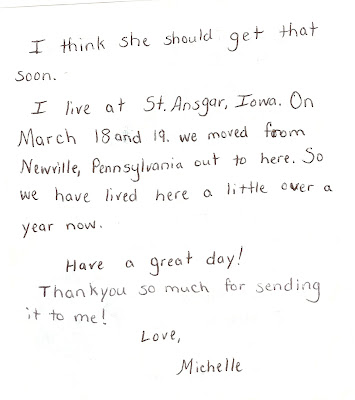 I think she should get that
soon.
I live at St. Ansgar, Iowa. On
March 18 and 19. we moved from
Newville, Pennsylvania out to here. So
we have lived here a little over a
year now.
Have a great day!
Thankyou so much for sending
it to me!
Love,
Michelle